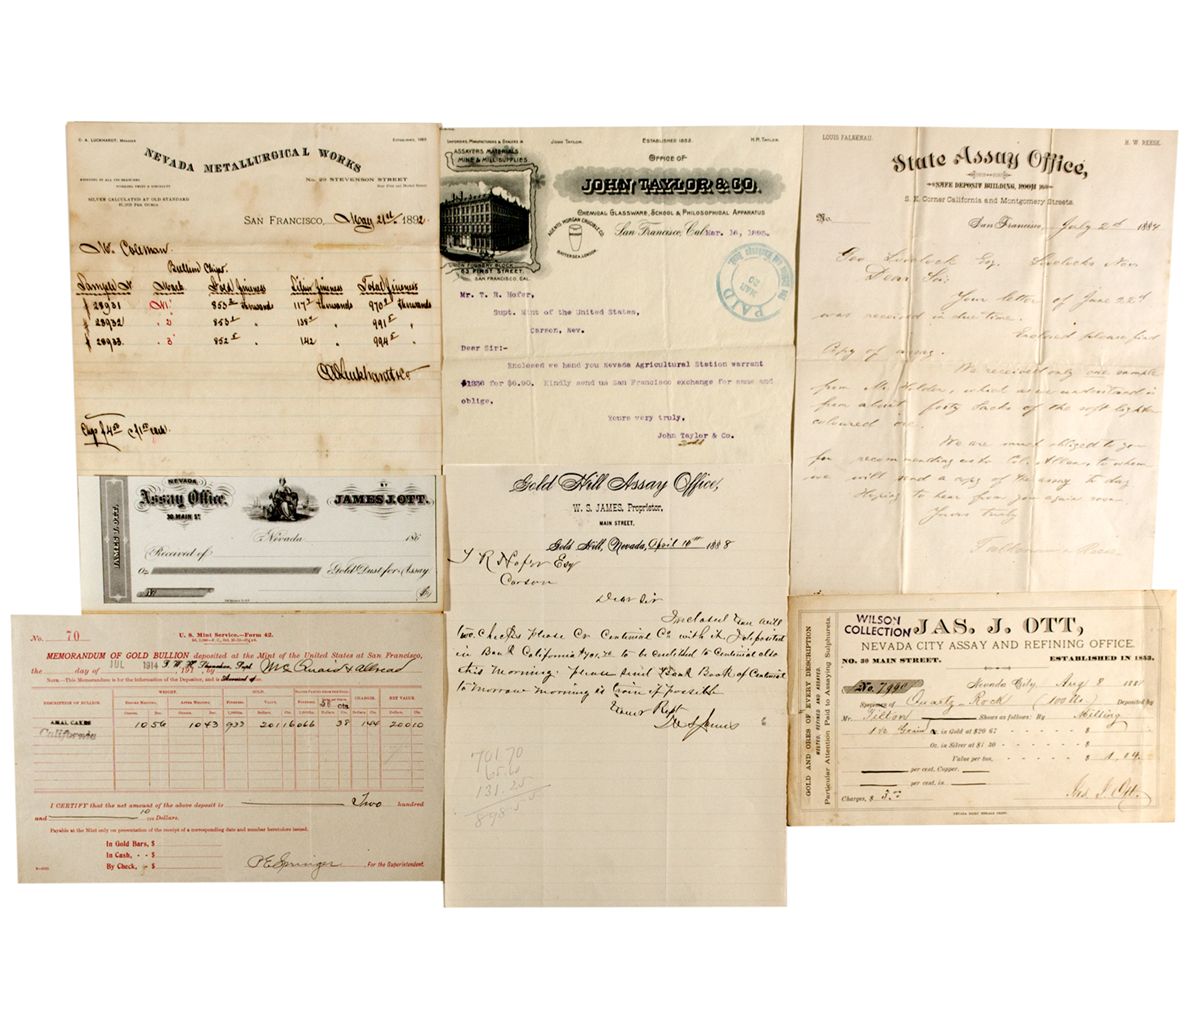 C. A. LUCKHARDT, MANAGER
ESTABLISHED, 1869
NEVADA METALLURGICAL WORKS
NO. 29 STEVENSON STREET
SILVER CALCULATED AT OLD STANDARD
SAN FRANCISCO, May 21st 1892
W. Coleman
Bullion Chips.
Sample No Mark Gold fineness Silver fineness Total fineness
28931
28932
28933
CALuckhardt&Co
IMPORTERS, MANUFACTURERS & DEALERS IN
ASSAYERS MATERIALS,
MINE & MILL SUPPLIES
JOHN TAYLOR.
ESTABLISHED 1852.
H.P. TAYLOR.
OFFICE OF
JOHN TAYLOR & CO.
CHEMICAL GLASSWARE, SCHOOL & PHILOSOPHICAL APPARATUS
AGENTS MORGAN CRUCIBLE CO.
BATTERSEA, LONDON.
San Francisco, Cal. Mar. 16, 1895.
63 FIRST STREET.
SAN FRANCISCO, CAL.
PAID
MAR
20
Mr. T. R. Hofer,
Supt. Mint of the United States,
Carson, Nev.
Dear Sir:-
Enclosed we hand you Nevada Agricultural Station warrant
#1236 for $6.90. Kindly send us San Francisco exchange for same and
oblige.
Yours very truly,
John Taylor & Co.
LOUIS FALKENAU.
H. W. REESE.
State Assay Office,
SAFE DEPOSIT BUILDING, ROOM
S. E. Corner California and Montgomery Streets.
No.
San Francisco, July 2nd 1884
Geo Lovelock Esq. Lovelocks Nev
Dear Sir:
Your letter of June 22d
was received in due time.
Enclosed please find
Copy of assay.
We received only one sample
from Mr. , which we understand is
from about forty sacks of the soft lighter
coloured ore.
We are much obliged to you
for recommending us to Col. , to whom
we will send a copy of the assay to day
Hoping to hear from you again soon
Yours truly
Falkenau & Reese
JAMES J. OTT.
NEVADA
Assay Office,
30 MAIN ST.
BY
JAMES J. OTT.
Nevada 186
Received of
Oz Gold Dust for Assay.
No
$
Gold Hill Assay Office,
W. S. JAMES, Proprietor.
MAIN STREET.
Gold Hill, Nevada, April 10th 1888
T R Hofer Esq
Carson
Dear Sir
Inclosed you will
two Checks Please Cr Centennial Co with it I deposited
in Bank California to be credited to Centennial also
this Morning. please send Bank of
to morrow morning in Coin if possible
W S James
701.70
165.60
131.25
No. 70
U. S. Mint Service.—Form 42.
MEMORANDUM OF GOLD BULLION deposited at the Mint of the United States at San Francisco,
the day of JUL 1914, 191 , by McQuaid & Allread
NOTE.—This Memorandum is for the information of the Depositor, and is
DESCRIPTION OF BULLION. WEIGHT. GOLD. CHARGES. NET VALUE.
AMAL CAKES 10 56 10 43 933 201 16066 38 1 44 200 10
California
I CERTIFY that the net amount of the above deposit is Two hundred
and 10/100 Dollars.
Payable at the Mint only on presentation of the receipt of a corresponding date and number heretofore issued.
In Gold Bars, $
In Cash, $
By Check, $
P E Springer, For the Superintendent.
WILSON
COLLECTION
GOLD AND ORES OF EVERY DESCRIPTION
MELTED, REFINED AND ASSAYED.
Particular Attention Paid to Assaying Sulphurets.
JAS. J. OTT,
NEVADA CITY ASSAY AND REFINING OFFICE.
NO. 30 MAIN STREET.
ESTABLISHED IN 1853.
No. 7990
Nevada City, Aug 8 1881
Specimen of Quartz Rock (100 lbs) Deposited by
Mr. Tilton Shows as follows: By Milling
Oz. in Gold at $20 67 $
Oz. in Silver at $1 30 $
Value per ton, $ 1.04
per cent. Copper,
per cent. in
Charges, $ 3
Jas. J. Ott.